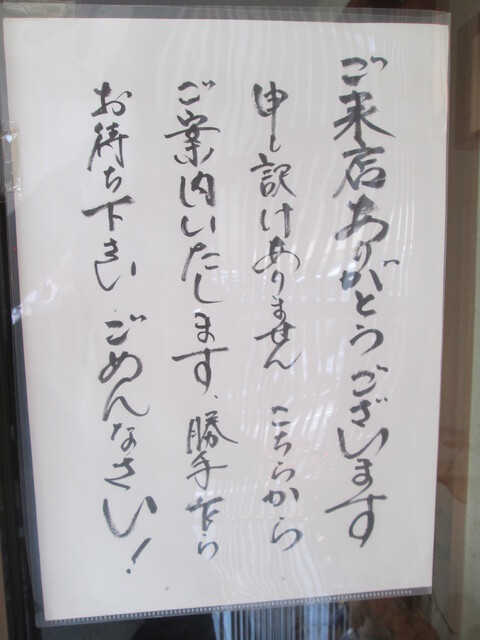 ご来店ありがとうございます
申し訳けありません こちらから
ご案内いたします、勝手乍ら
お待ち下さい ごめんなさい!